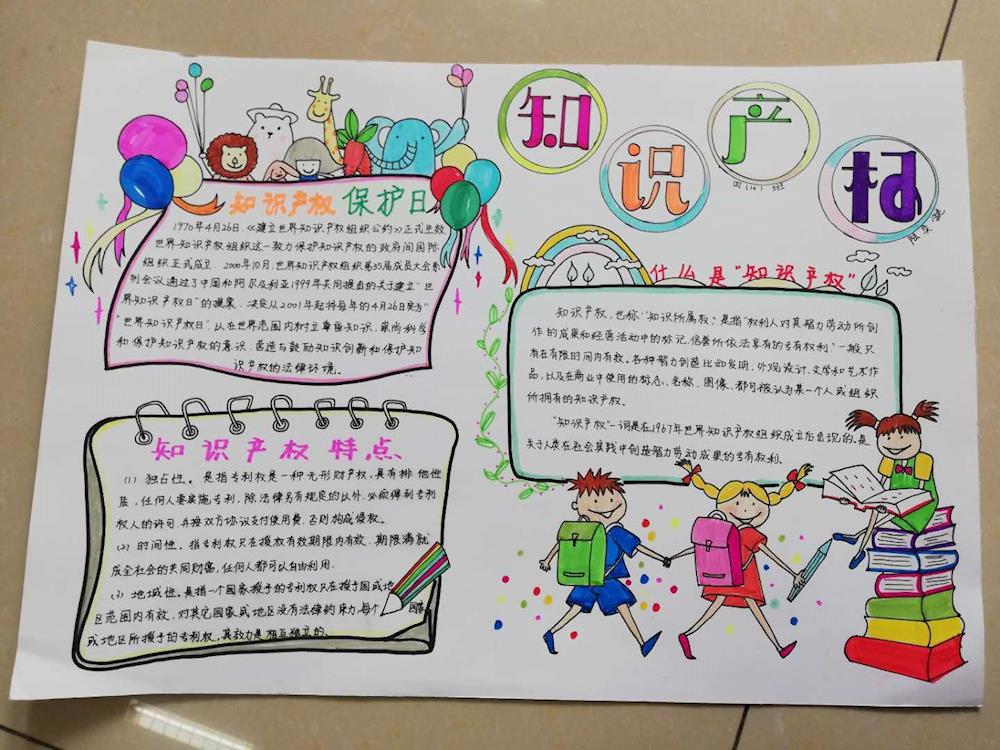 知识产权
四(10)班
知识产权保护日
1970年4月26日，《建立世界知识产权组织公约》正式生效
世界知识产权组织这一致力保护知识产权的政府间国际
组织正式成立．2000年10月，世界知识产权组织第35届成员大会系
列会议通过了中国和阿尔及利亚1999年共同提出的关于建立“世
界知识产权日”的提案．决定从2001年起将每年的4月26日定为
“世界知识产权日”．以在世界范围内树立尊重知识，崇尚科学
和保护知识产权的意识．营造与鼓励知识创新和保护知
识产权的法律环境．
什么是“知识产权”
知识产权，也称：“知识所属权，是指“权利人对其智力劳动所创
作的成果和经营活动中的标记、信誉所依法享有的专有权利”一般只
有在有限的时间内有效。各种智力创造比如发明、外观设计、文学和艺术作
品，以及在商业中使用的标志、名称、图像、都可被认为某一个人或组织
所拥有的知识产权。
“知识产权”一词是在1967年世界知识产权组织成立后出现的．是
关于人类在社会实践中创造智力劳动成果的专有权利．
知识产权特点
(1) 独占性．是指专利权是一种无形财产权，具有排他性
质，任何人要实施专利，除法律另有规定的以外，必须得到专利
权人的许可．并按双方协议支付使用费．否则构成侵权。
(2) 时间性．指专利权只在授权有效期限内有效．期限满就
成全社会的共同财富，任何人都可以自由利用．
(3) 地域性．是指一个国家授予的专利权只在授予国或地
区范围内有效，对其它国家或地区没有法律约束力．每个国家
或地区所授予的专利权，其效力是相互独立的．